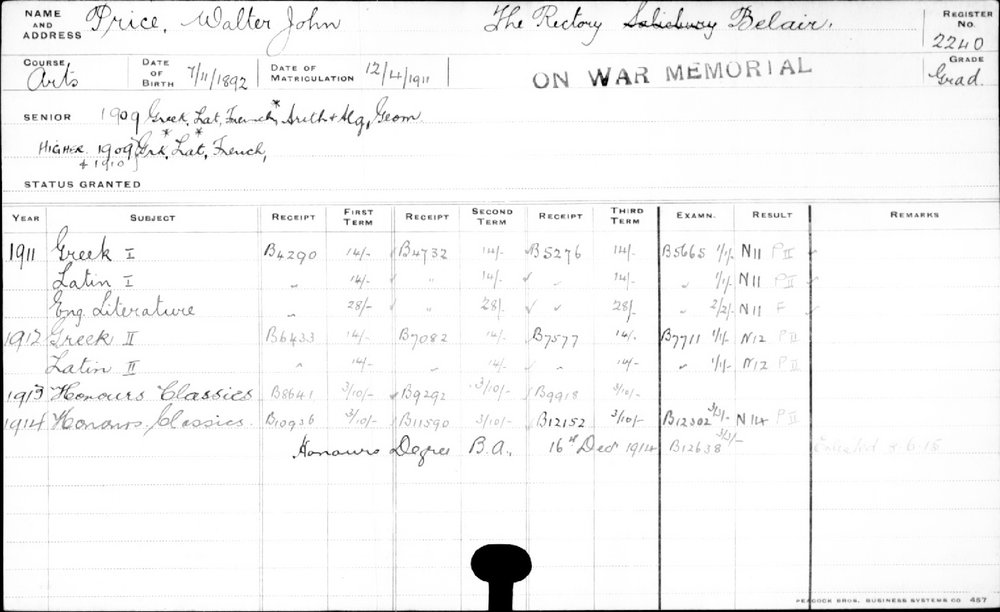 NAME AND ADDRESS Price, Walter John The Rectory Salisbury Belair. REGISTER No. 2240
COURSE Arts DATE OF BIRTH 7/11/1892 DATE OF MATRICULATION 12/4/1911 ON WAR MEMORIAL GRADE Grad.
SENIOR 1909 Greek, Lat, French,* Arith & Alg, Geom
HIGHER 1909 & 1910} Grk,* Lat,* French,
STATUS GRANTED
YEAR SUBJECT RECEIPT FIRST TERM RECEIPT SECOND TERM RECEIPT THIRD TERM EXAMN. RESULT REMARKS
1911 Greek I B4290 14/- ✓ B4732 14/- ✓ B5276 14/- B5665 1/1/- N11 P II ✓
Latin I " 14/- ✓ " 14/- ✓ " 14/- " 1/1/- N11 P II ✓
Eng. Literature " 28/- ✓ " 28/- ✓ " 28/- " 2/2/- N11 F ✓
1912 Greek II B6433 14/- B7082 14/- B7577 14/- B7711 1/1/- N12 P II
Latin II " 14/- " 14/- ✓ " 14/- " 1/1/- N12 P II
1913 Honours Classics B8641 3/10/- ✓ B9292 3/10/- ✓ B9918 3/10/-
1914 Honours Classics. B10936 3/10/- ✓ B11590 3/10/- ✓ B12152 3/10/- B12302 3/3/- N14 P II
Honours Degree B.A., 16th Decr 1914 B12638 3/3/- Enlisted 5-6-15
PEACOCK BROS. BUSINESS SYSTEMS CO 457